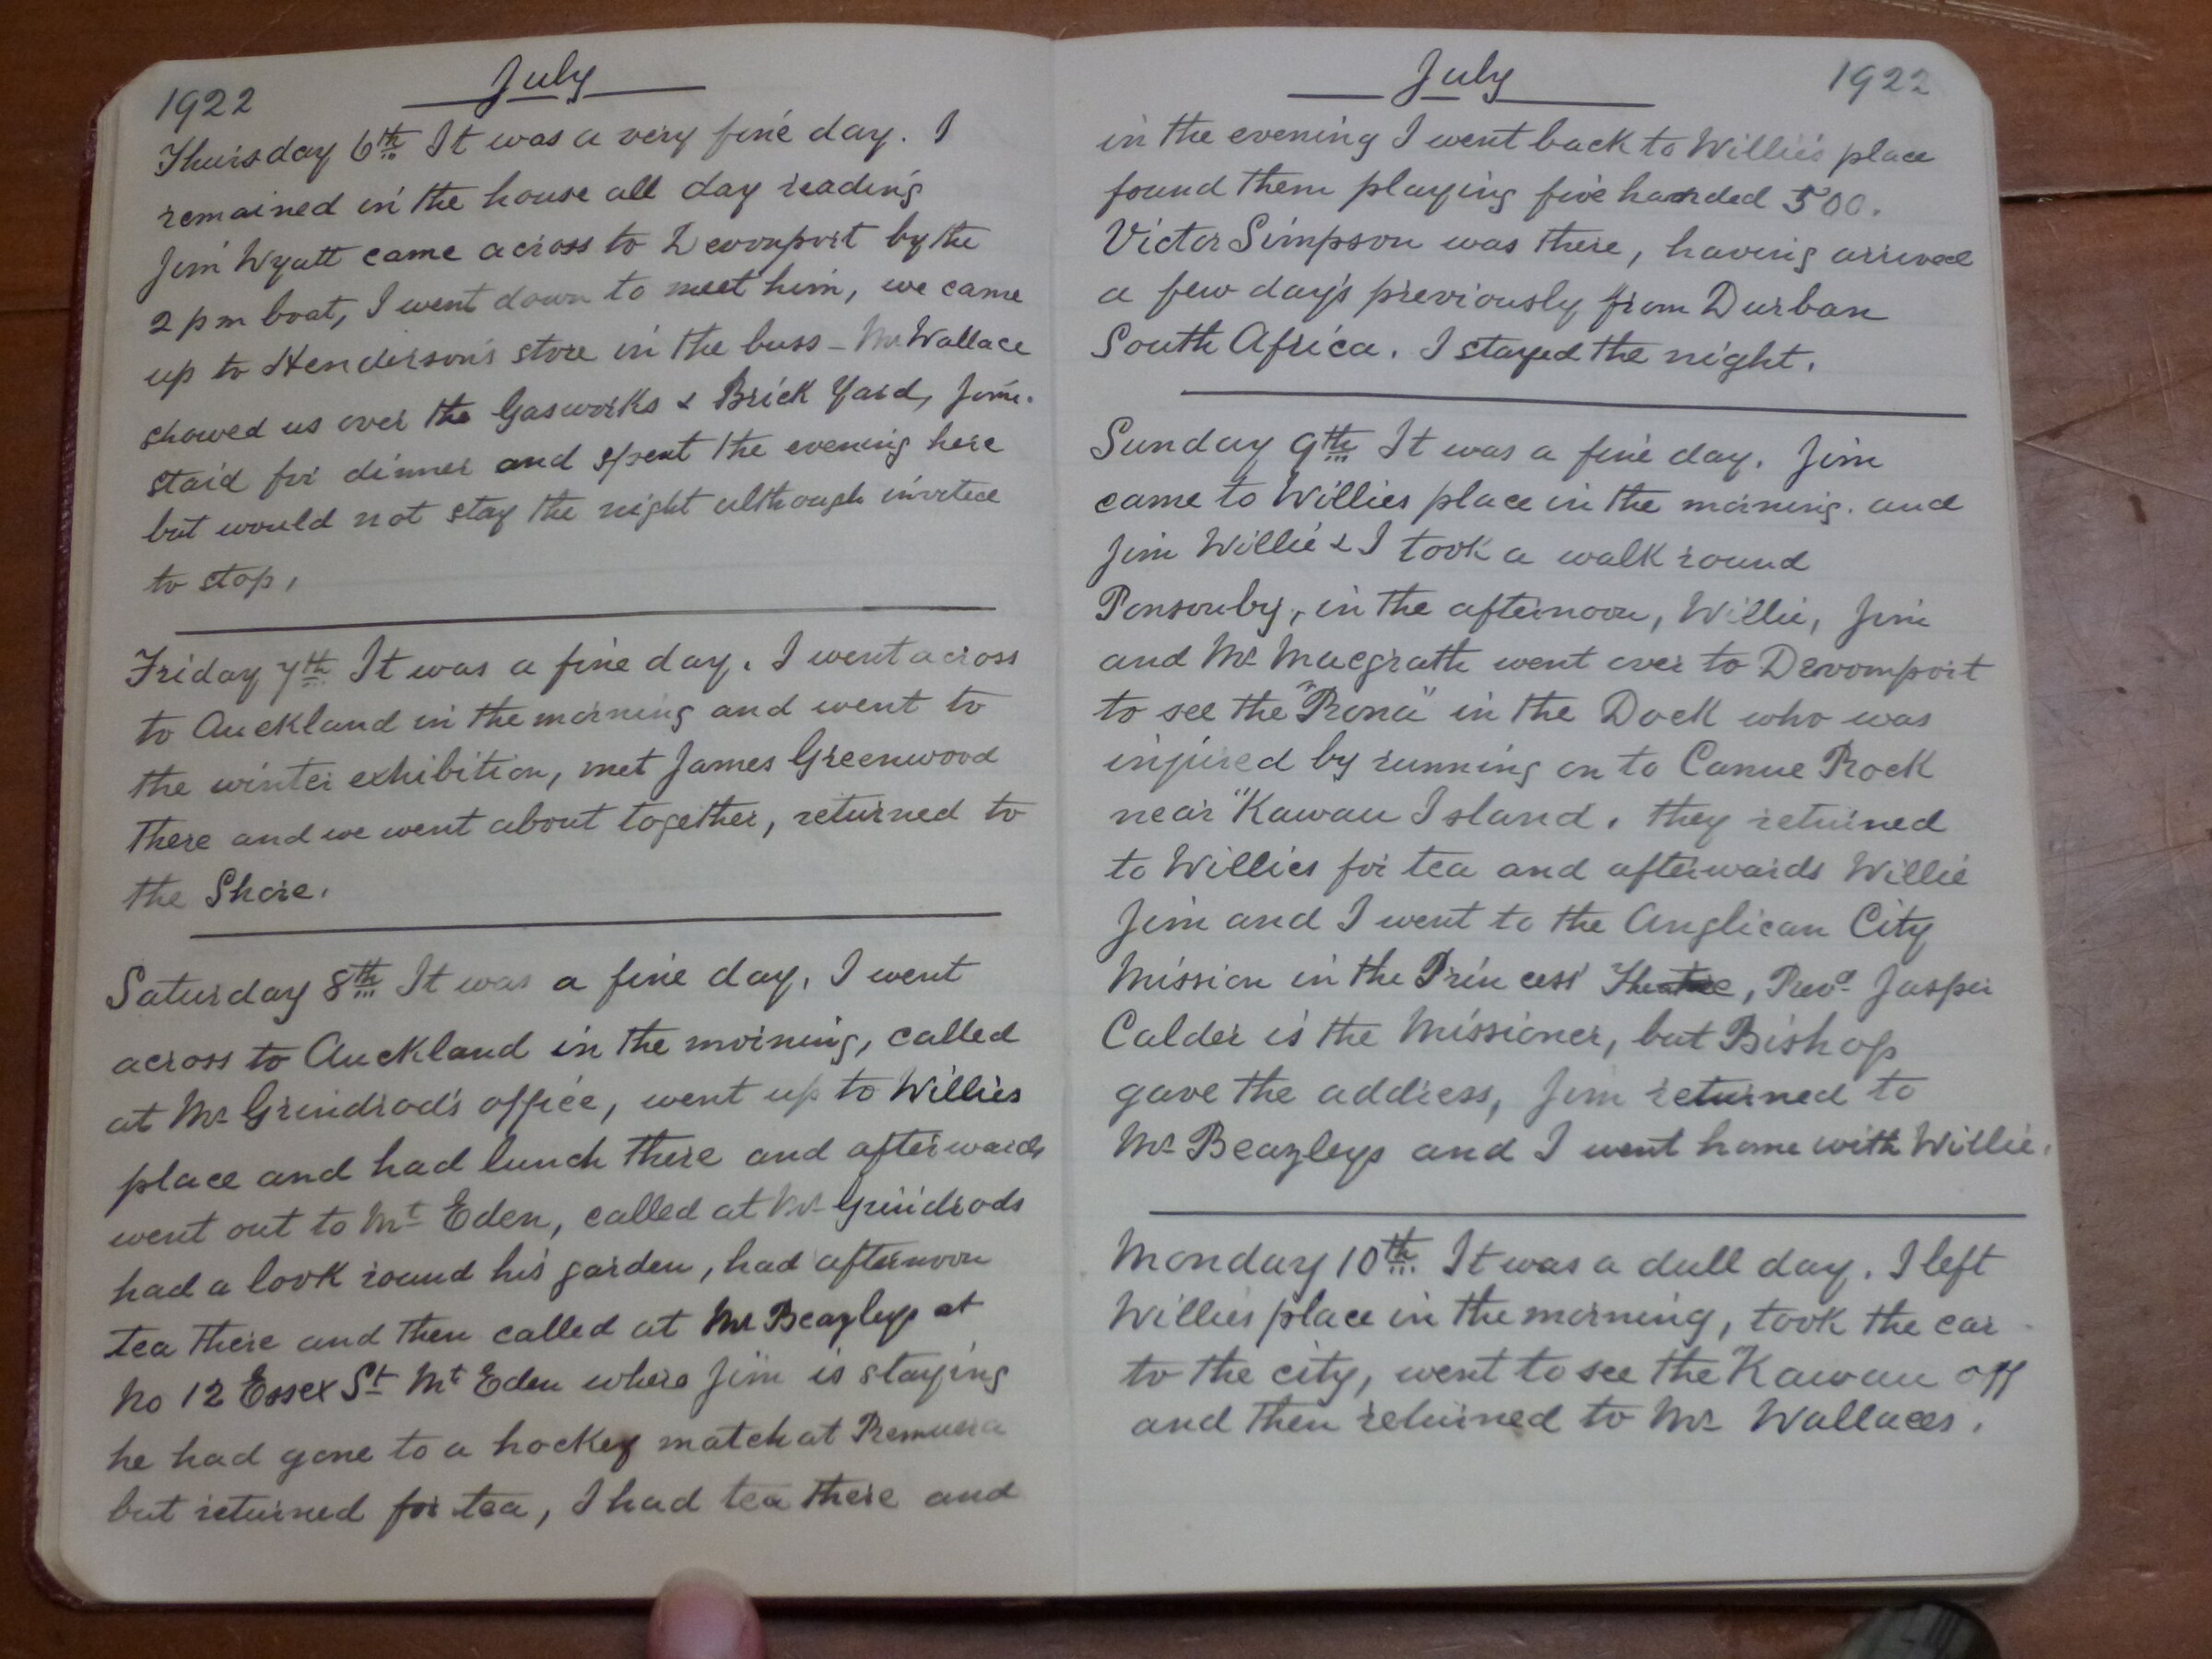 1922 July
Thursday 6th It was a very fine day. I
remained in the house all day reading
Jim Wyatt came across to Devonport by the
2 pm boat, I went down to meet him, we came
up to Henderson's store in the buss - Mr Wallace
showed us over the Gasworks & Brick Yard, Jim.
staid for dinner and spent the evening here
but would not stay the night although invited
to stop,
Friday 7th It was a fine day. I went across
to Auckland in the morning and went to
the winter exhibition, met James Greenwood
there and we went about together, returned to
the Shore.
Saturday 8th It was a fine day, I went
across to Auckland in the morning, called
at Mr Grindrod's office, went up to Willies
place and had lunch there and afterwards
went out to Mt Eden, called at Mr Grindrods
had a look round his garden, had afternoon
tea there and then called at Mr Beazleys at
No 12 Essex St Mt Eden where Jim is staying
he had gone to a hockey match at Remuera
but returned for tea, I had tea there and
July 1922
in the evening I went back to Willie's place
found them playing five handed 500.
Victor Simpson was there, having arrived
a few days previously from Durban
South Africa. I stayed the night.
Sunday 9th It was a fine day. Jim
came to Willies place in the morning. and
Jim Willie & I took a walk round
Ponsonby, in the afternoon, Willie, Jim
and Mr Macgrath went over to Devomport
to see the "Rona" in the Dock who was
injured by running on to Canue Rock
near "Kawau Island. they returned
to Willies for tea and afterwards Willie
Jim and I went to the Anglican City
Mission in the Princess' Theatre, Revd Jasper
Calder is the Missioner, but Bishop
gave the address, Jim returned to
Mr Beazleys and I went home with Willie.
Monday 10th It was a dull day. I left
Willies place in the morning, took the car
to the city, went to see the Kawau off
and then returned to Mr Wallaces.